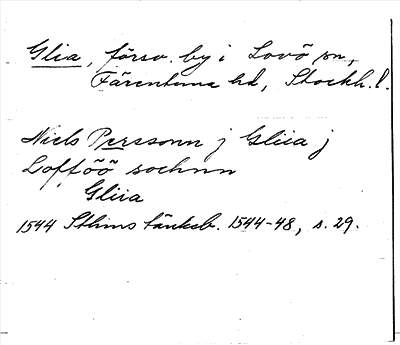 Glia, försv. by i Lovö sn,
Färentuna hd, Stockh. l.
Niels Perssonn j Gliia j
Lofföö sochnn
Gliia
1544 Sthms tänkeb. 1544-48, s. 29.